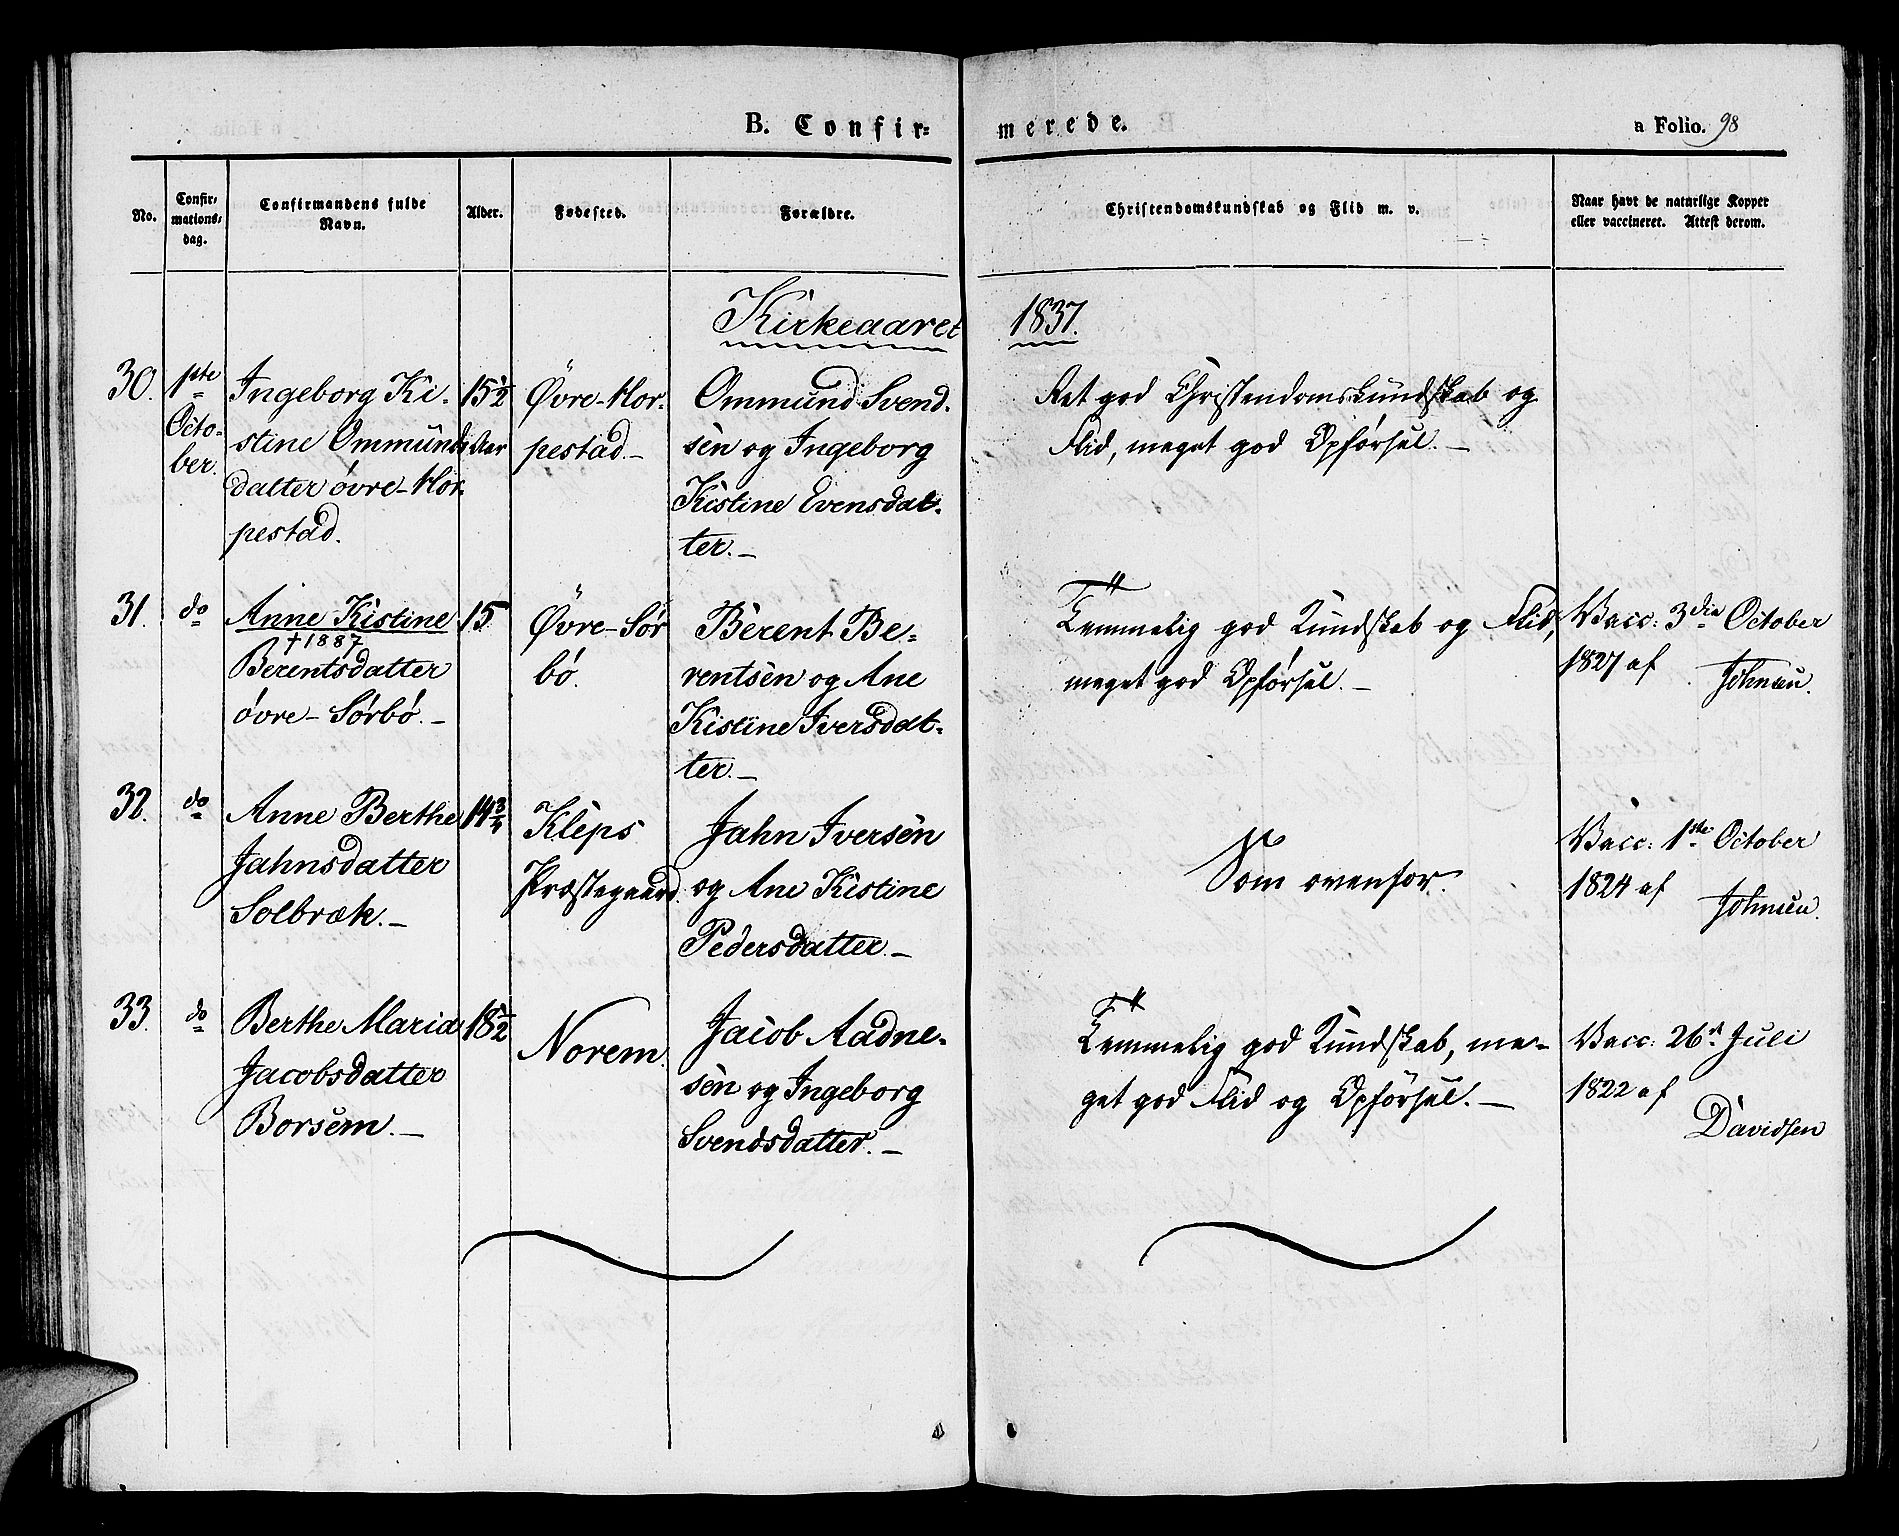 B. Confir=
merede.
a Folio. 98
No.
Confir=
mations=
dag.
Confirmandens fulde
Navn.
Alder.
Fødested.
Forældre.
Christendomskundskab og Flid m. v.
Naar havt de naturlige Kopper
eller vaccineret. Attest derom.
Kirkeaaret 1837.
30.
1ste
Octo-
ber.
Ingeborg Ki-
stine Ommunds
datter övre-Hor-
pestad.
15½
Aar
Øvre-Hor-
pestad.-
Ommund Svend-
sen og Ingeborg
Kistine Evensdat-
ter.-
Ret god Christendomskundskab og
Flid, meget god Opförsel.-
31.
do
Anne Kistine
†1887
Berentsdatter
övre-Sörbö.-
15
Øvre-Sör
bö.
Berent Be-
rentsen og Ane
Kistine Iversdat-
ter.-
Temmelig god Kundskab og Flid,
meget god Opförsel.-
Vacc: 3die October
1827 af
Johnsen.
32.
do
Anne Berthe
Jahnsdatter
Solbræk.-
14¾
Kleps
Præstegaard.
Jahn Iversen
og Ane Kistine
Pedersdatter.-
Som ovenfor.
Vacc: 1ste October
1824 af
Johnsen.
33.
do
Berthe Maria
Jacobsdatter
Borsem.-
18½
Norem.
Jacob Aadne-
sen og Ingeborg
Svendsdatter.-
Temmelig god Kundskab, me-
get god Flid og Opförsel.-
Vacc: 26de Juli
1822 af
Davidsen